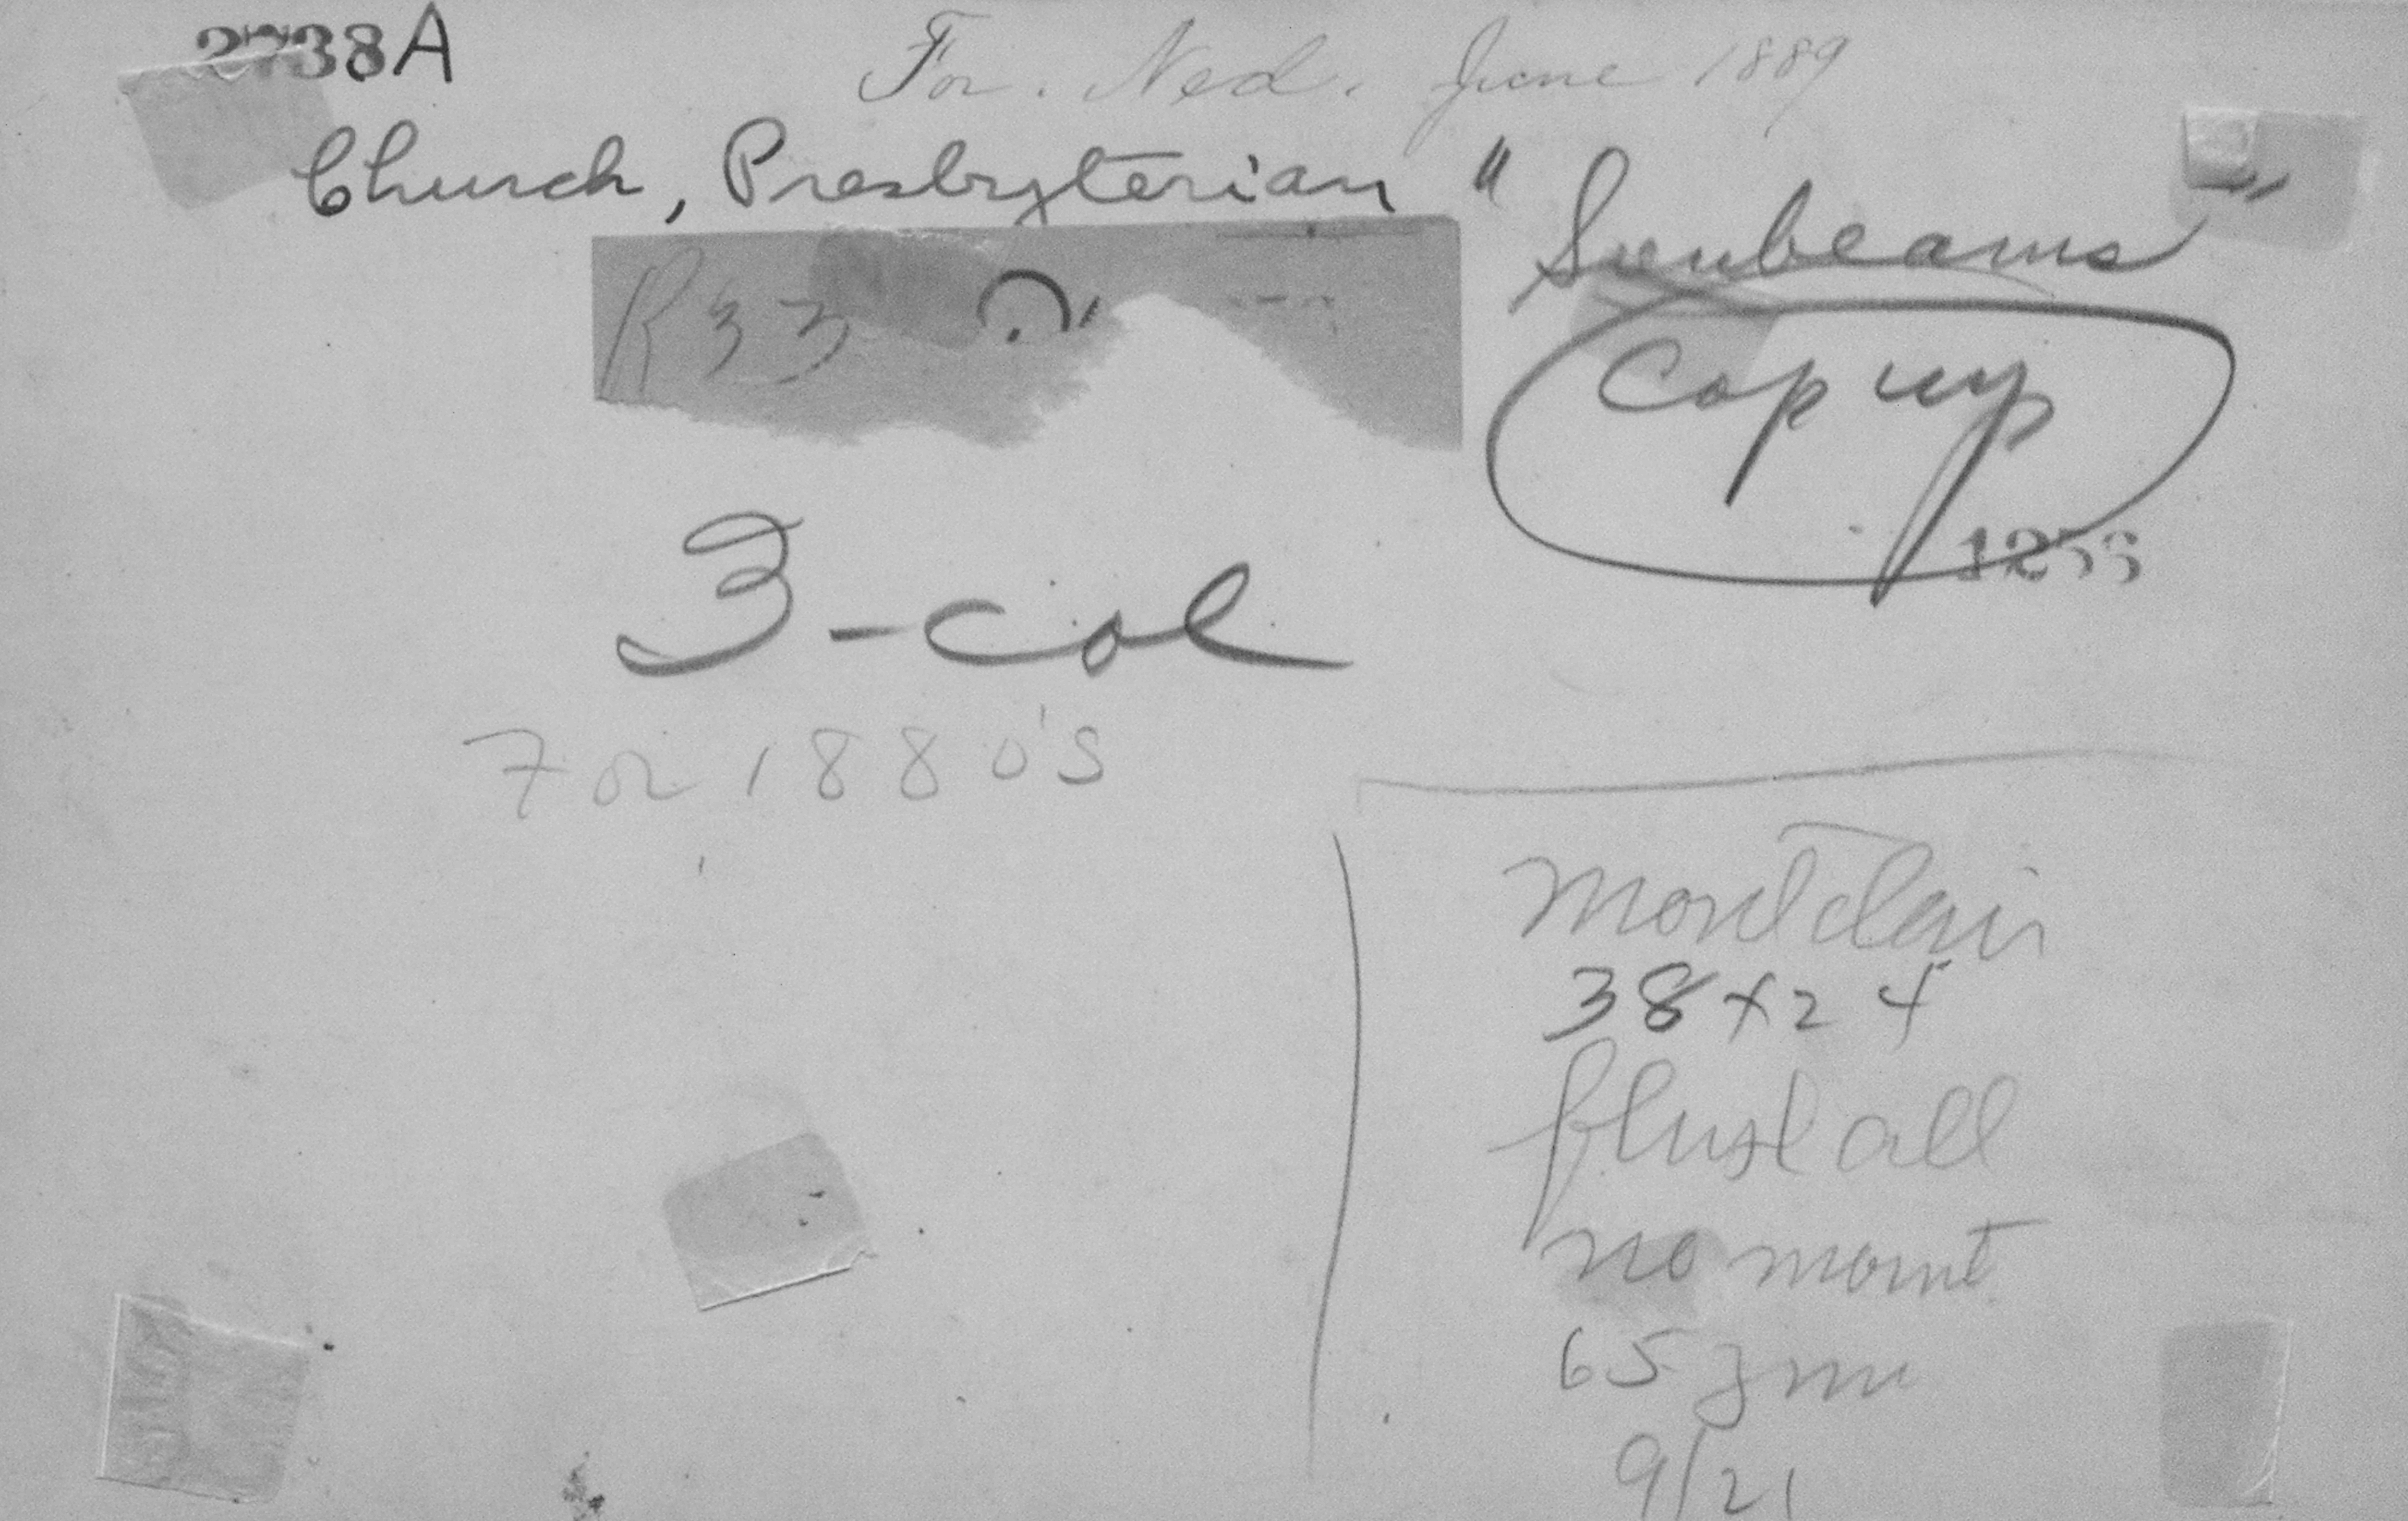 2738A
For. Ned. June 1889
Church, Presbyterian "Sunbeams"
R33
Cop up
3-col
For 1880's
Montclair
38x24
flush all
no mount
65
9/21